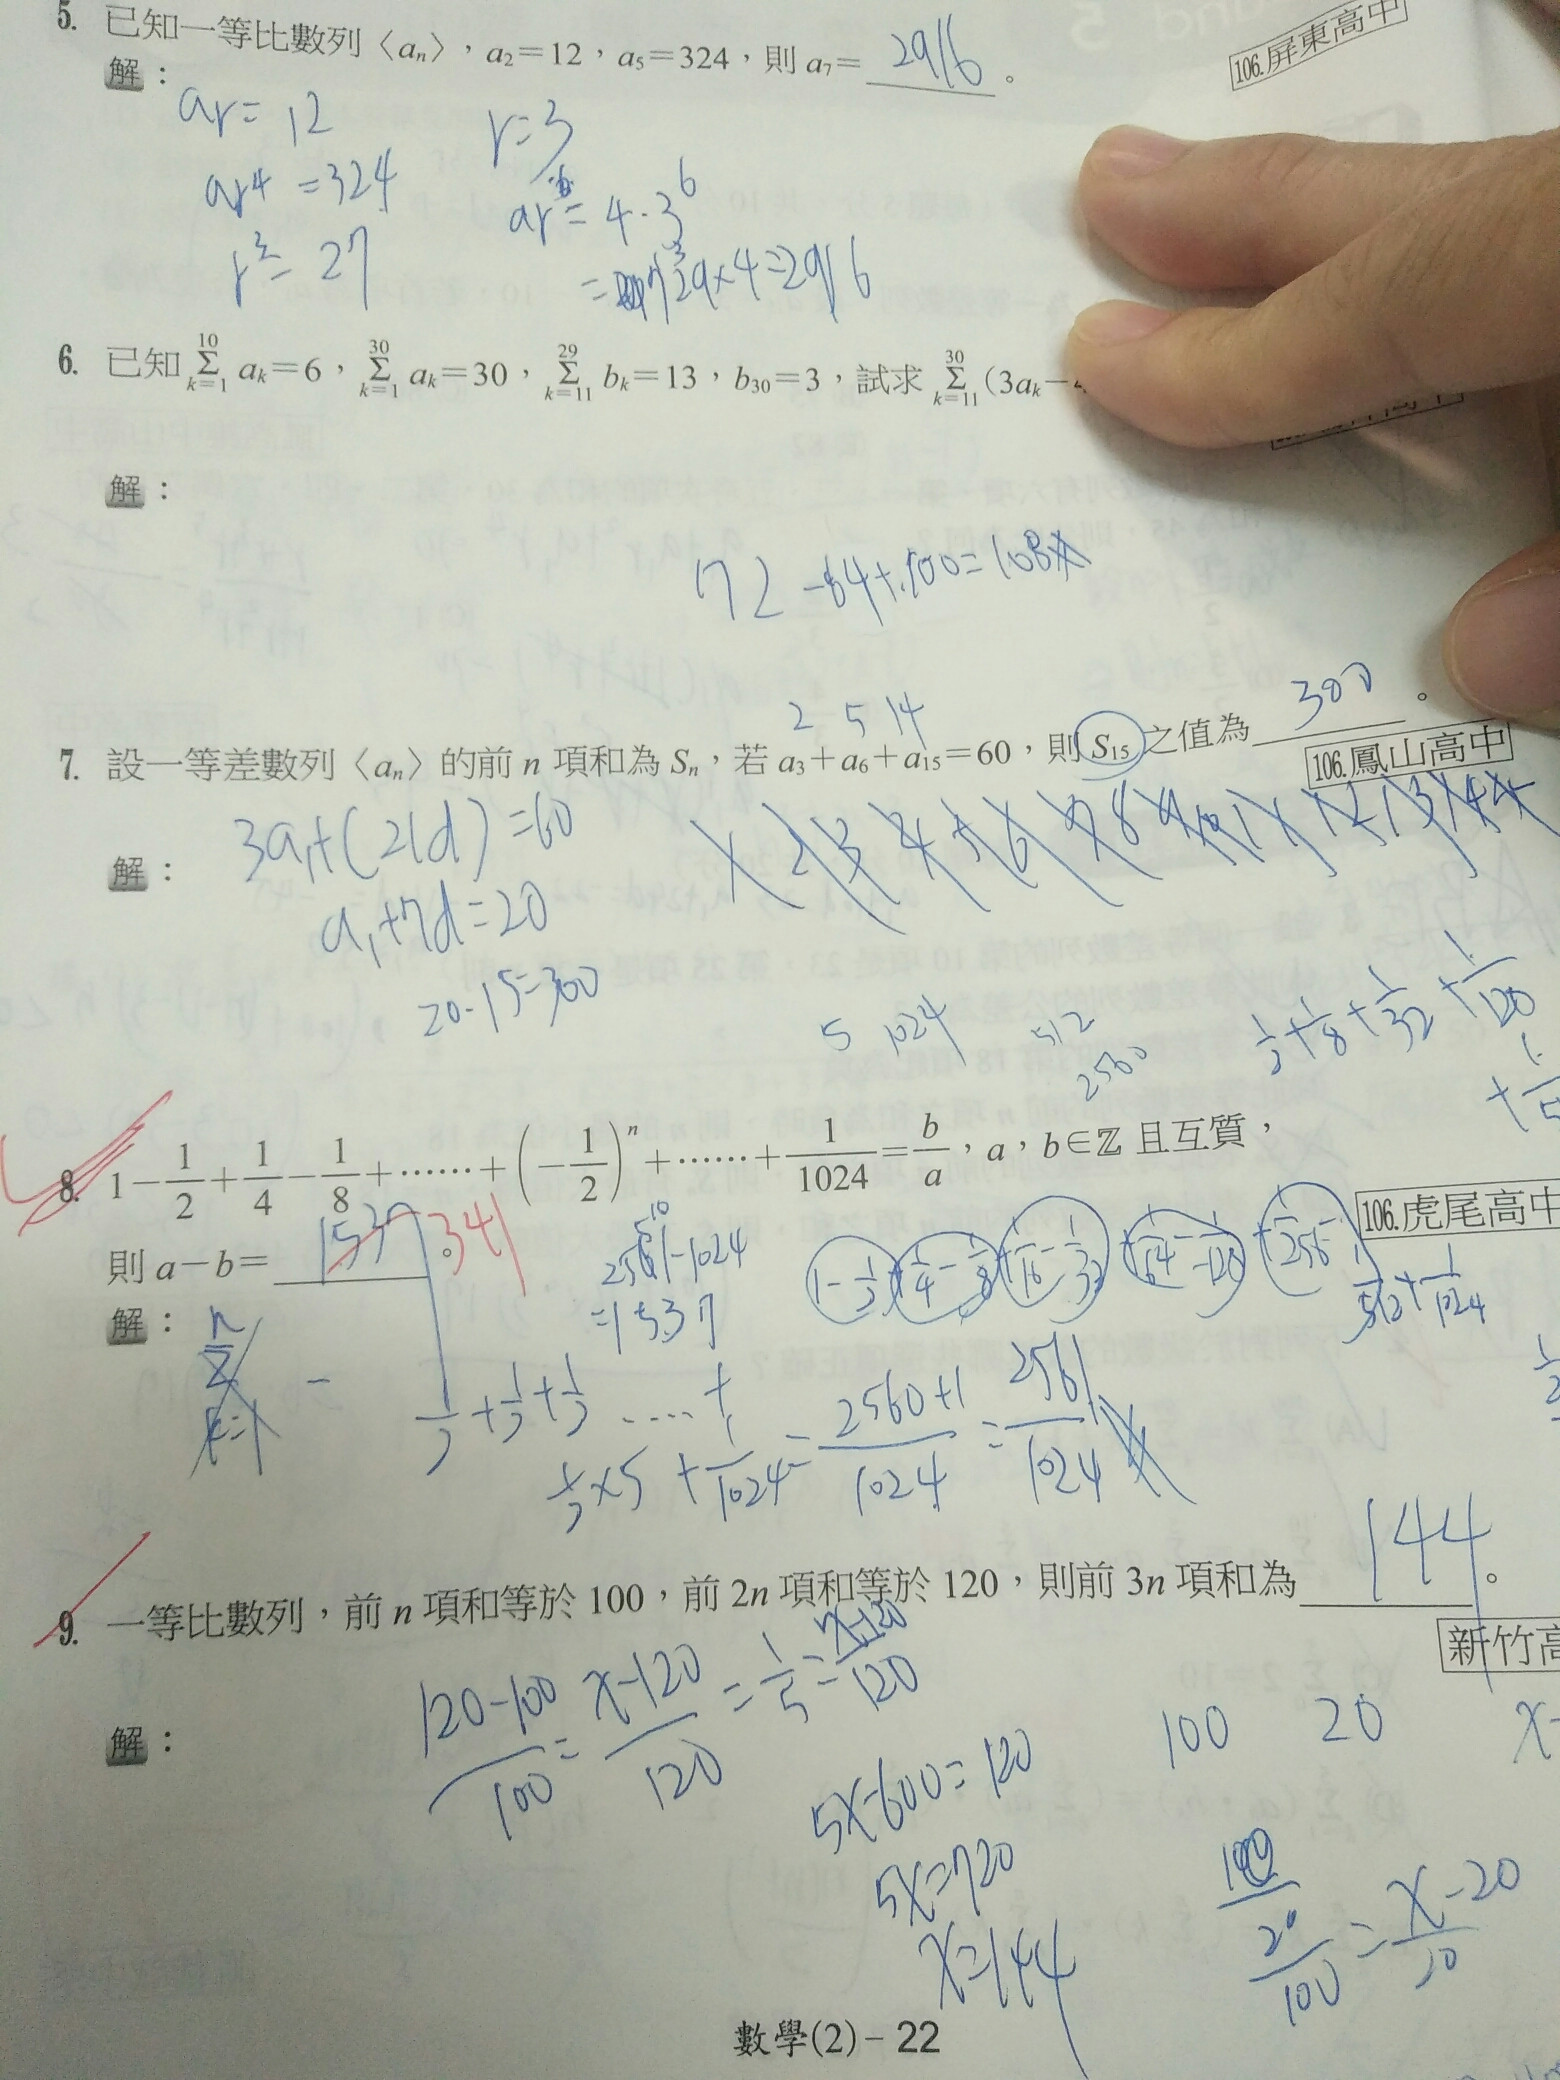 5. 已知一等比數列〈aₙ〉，a₂=12，a₅=324，則 a₇= 2916 。
106.屏東高中
解：
ar = 12
r=3
ar⁴ = 324
ar⁶ = 4·3⁶
r³ = 27
= 729×4=2916
6. 已知 Σ(k=1→10) aₖ=6，Σ(k=1→30) aₖ=30，Σ(k=11→29) bₖ=13，b₃₀=3，試求 Σ(k=11→30) (3aₖ−
解：
72 −64+100=108
2 5 14
7. 設一等差數列〈aₙ〉的前 n 項和為 Sₙ，若 a₃+a₆+a₁₅=60，則 S₁₅ 之值為 300 。
106.鳳山高中
解：
3a₁+(21d)=60
a₁+7d=20
20·15=300
5 1024 512
2560
1/2+1/8+1/32+1/128
8. 1−1/2+1/4−1/8+⋯⋯+(−1/2)ⁿ+⋯⋯+1/1024=b/a，a，b∈ℤ 且互質，
106.虎尾高中
則 a−b= 1537 。341
2561−1024
=1537
1−1/2 +1/4−1/8 +1/16−1/32 +1/64−1/128 +1/256−1/512+1/1024
解：
1/2+1/2+1/2 ....+
1/2×5+1/1024=(2560+1)/1024=2561/1024
9. 一等比數列，前 n 項和等於 100，前 2n 項和等於 120，則前 3n 項和為 144 。
新竹高
解：
(120−100)/100=(x−120)/120=1/5=(x−120)/120
100 20 x−
5x−600=120
5x=720
x=144
20/100=(x−20)/10
數學(2)−22